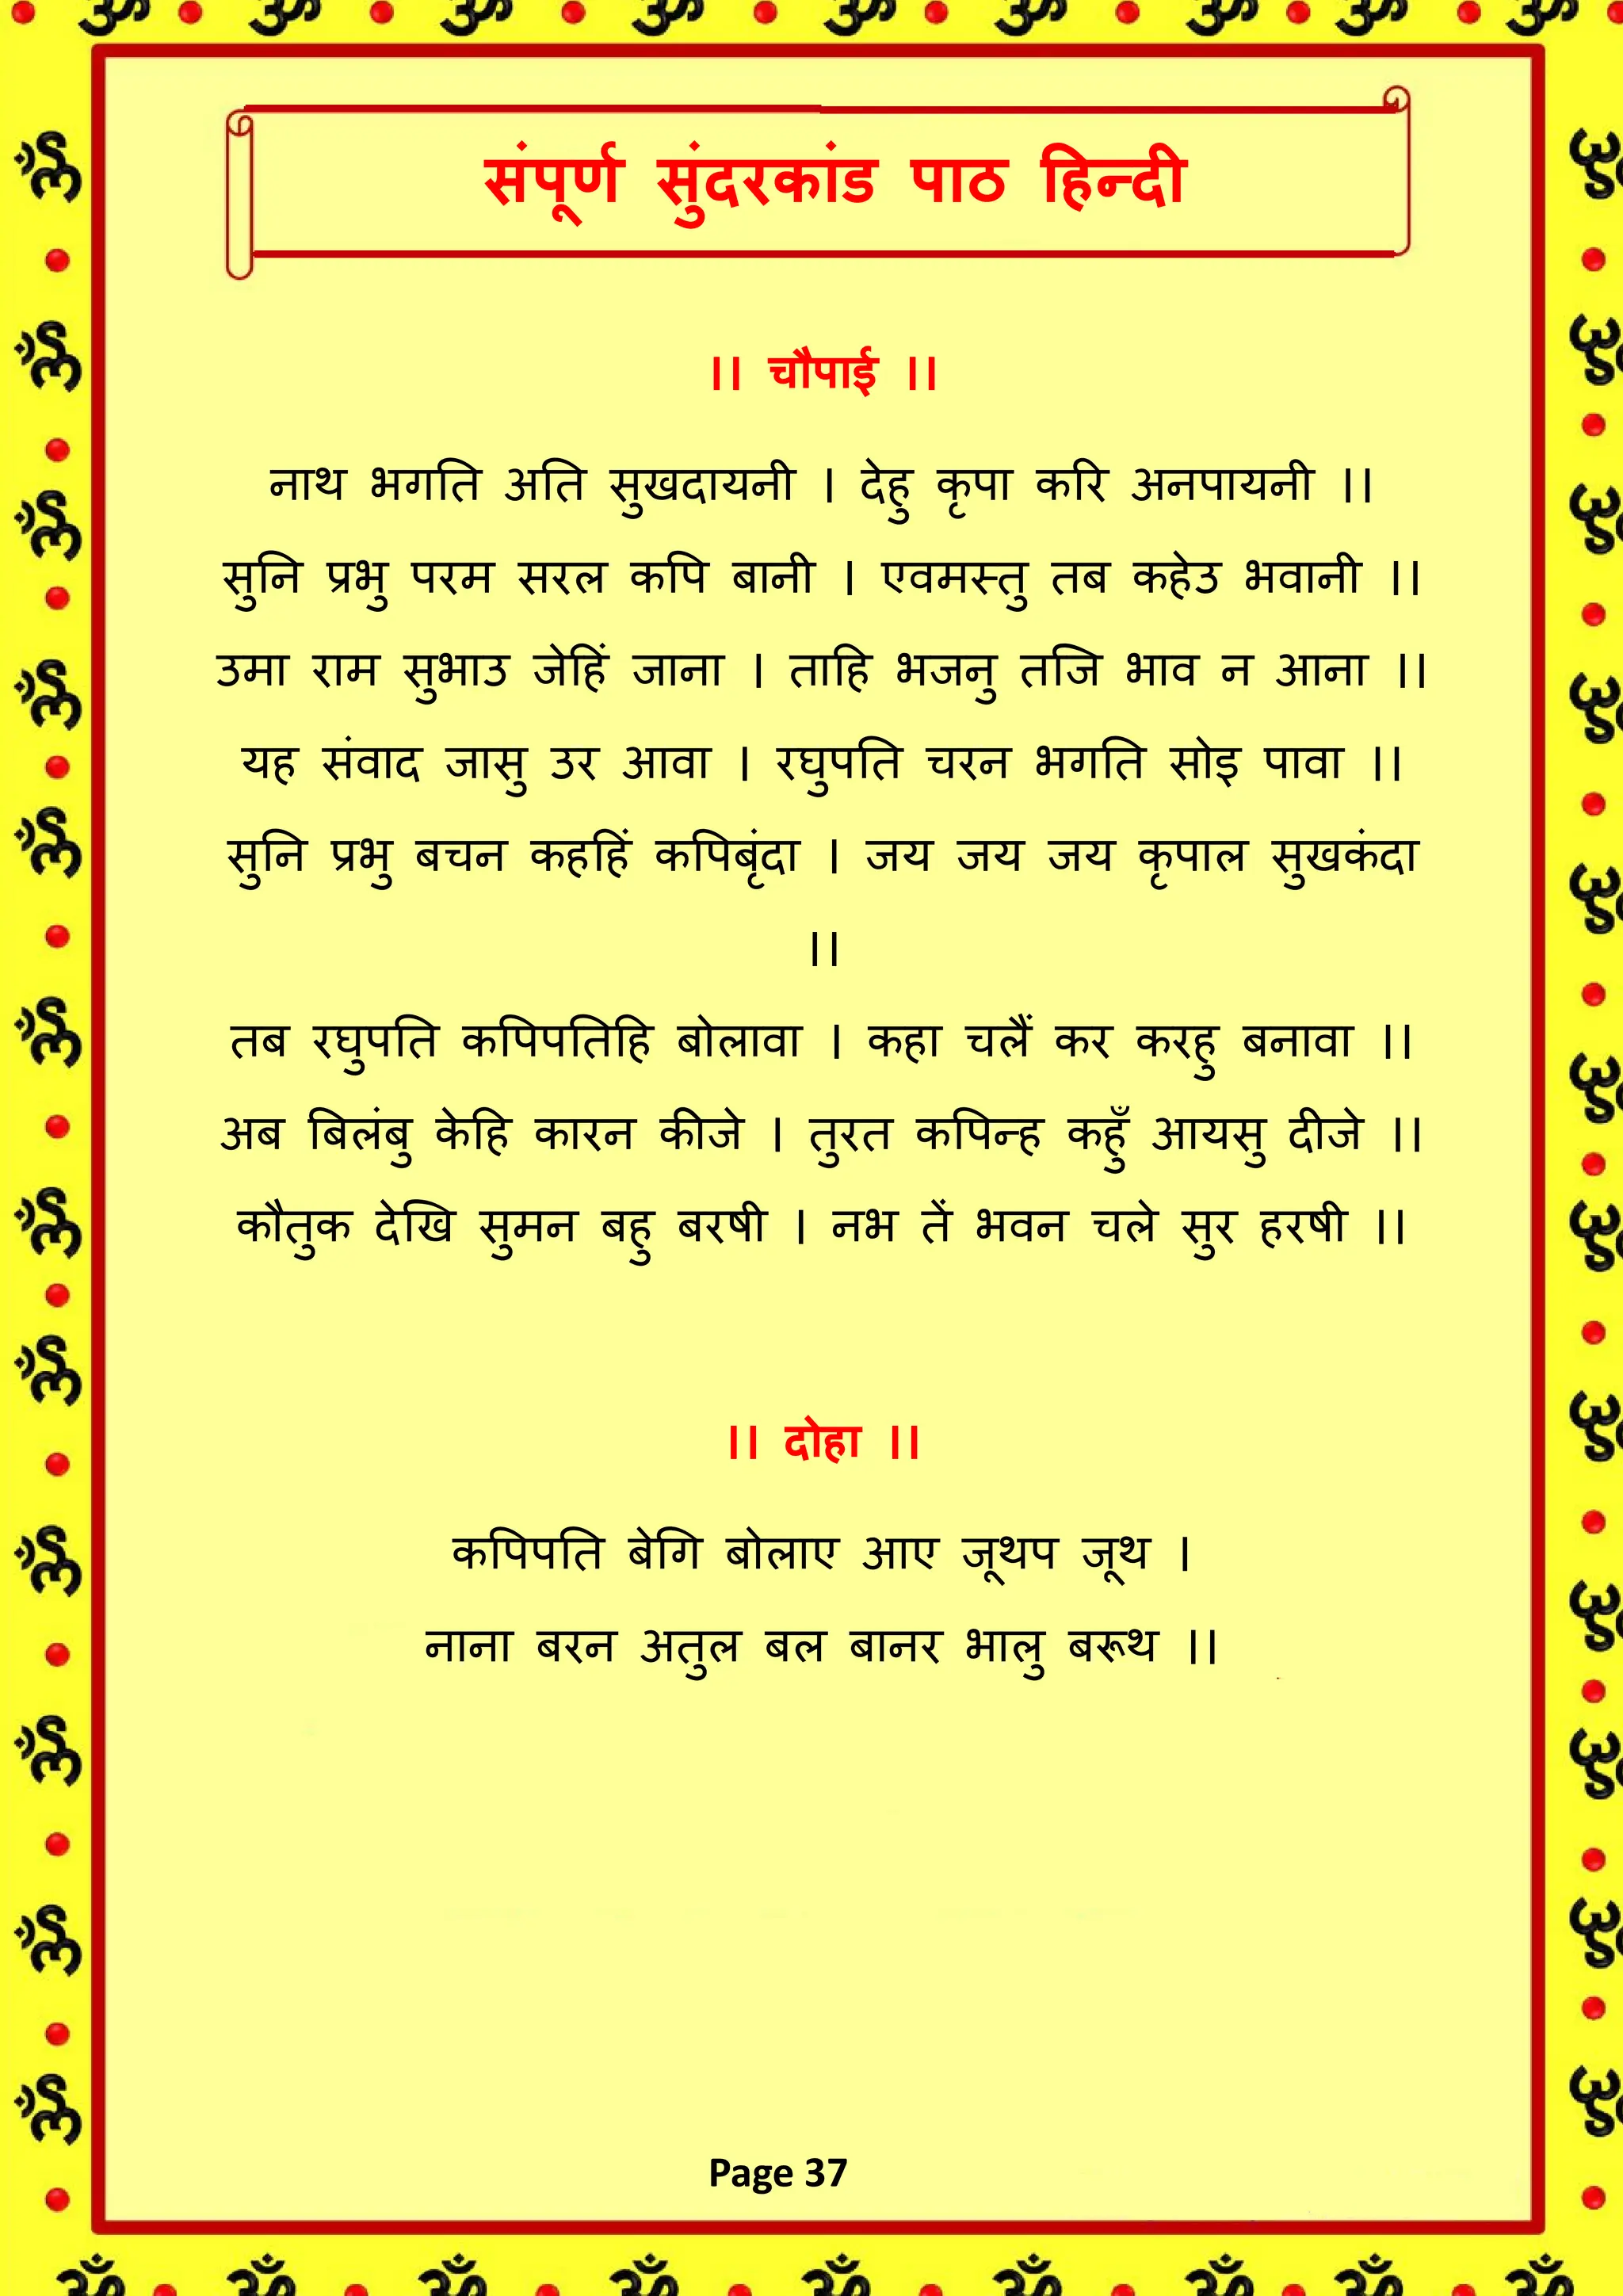 संपूर्ण सुंदरकांड पाठ हिन्दी
।। चौपाई ।।
नाथ भगति अति सुखदायनी । देहु कृपा करि अनपायनी ।।
सुनि प्रभु परम सरल कपि बानी । एवमस्तु तब कहेउ भवानी ।।
उमा राम सुभाउ जेहिं जाना । ताहि भजनु तजि भाव न आना ।।
यह संवाद जासु उर आवा । रघुपति चरन भगति सोइ पावा ।।
सुनि प्रभु बचन कहहिं कपिबृंदा । जय जय जय कृपाल सुखकंदा
।।
तब रघुपति कपिपतिहि बोलावा । कहा चलैं कर करहु बनावा ।।
अब बिलंबु केहि कारन कीजे । तुरत कपिन्ह कहुँ आयसु दीजे ।।
कौतुक देखि सुमन बहु बरषी । नभ तें भवन चले सुर हरषी ।।
।। दोहा ।।
कपिपति बेगि बोलाए आए जूथप जूथ ।
नाना बरन अतुल बल बानर भालु बरूथ ।।
Page 37